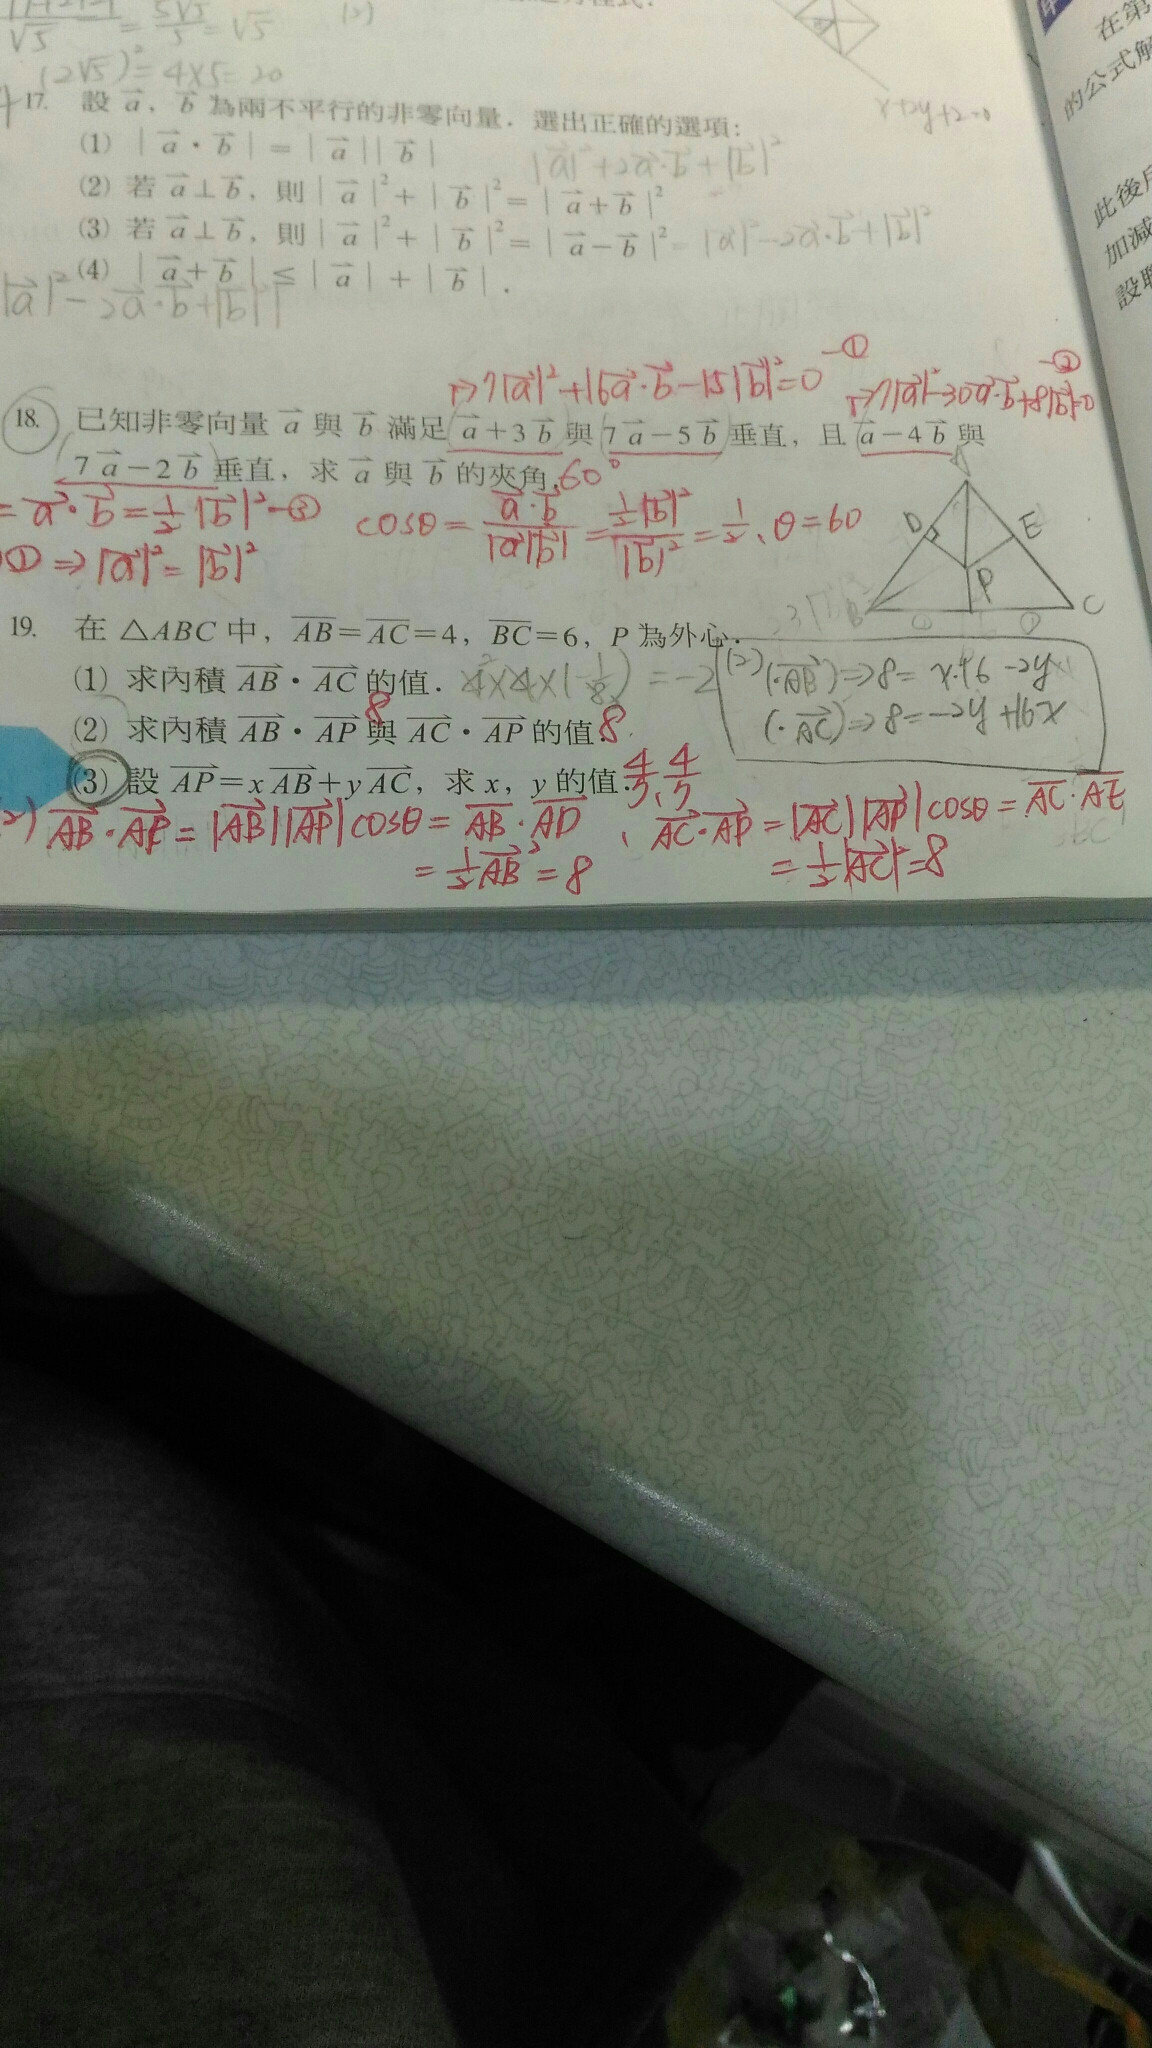 = 5√5/5 = √5
(2)
(2√5)² = 4×5=20
x+2y+2=0
在第
的公式解
17. 設 a⃗, b⃗ 為兩不平行的非零向量. 選出正確的選項:
(1) | a⃗ · b⃗ | = | a⃗ | | b⃗ |
|a⃗|²+2a⃗·b⃗+|b⃗|²
(2) 若 a⃗⊥b⃗, 則 | a⃗ |² + | b⃗ |² = | a⃗+b⃗ |²
(3) 若 a⃗⊥b⃗, 則 | a⃗ |² + | b⃗ |² = | a⃗−b⃗ |² = |a⃗|²−2a⃗·b⃗+|b⃗|²
(4) | a⃗+b⃗ | ≤ | a⃗ | + | b⃗ |.
|a⃗|²−2a⃗·b⃗+|b⃗|²
加減
設聯
7|a⃗|²+16a⃗·b⃗−15|b⃗|²=0 −①
7|a⃗|²−30a⃗·b⃗+8|b⃗|²=0 −②
18. 已知非零向量 a⃗ 與 b⃗ 滿足 a⃗+3b⃗ 與 7a⃗−5b⃗ 垂直, 且 a⃗−4b⃗ 與
7a⃗−2b⃗ 垂直, 求 a⃗ 與 b⃗ 的夾角. 60°
= a⃗·b⃗ = ½|b⃗|² −③
cosθ = a⃗·b⃗/|a⃗||b⃗| = ½|b⃗|²/|b⃗|² = ½, θ=60
① ⇒ |a⃗|² = |b⃗|²
A
D
E
P
B
C
19. 在 △ABC 中, AB=AC=4, BC=6, P 為外心.
(1) 求內積 AB⃗·AC⃗ 的值. 4×4×(−1/8) = −2
(2) 求內積 AB⃗·AP⃗ 與 AC⃗·AP⃗ 的值. 8 8
(3) 設 AP⃗=xAB⃗+yAC⃗, 求 x, y 的值.
(2) (·AB⃗) ⇒ 8 = x·16 −2y
(·AC⃗) ⇒ 8=−2y+16x
2) AB⃗·AP⃗ = |AB⃗||AP⃗|cosθ = AB⃗·AD⃗
= ½AB⃗² = 8
AC⃗·AP⃗ = |AC⃗||AP⃗|cosθ = AC⃗·AE⃗
= ½|AC⃗|² = 8